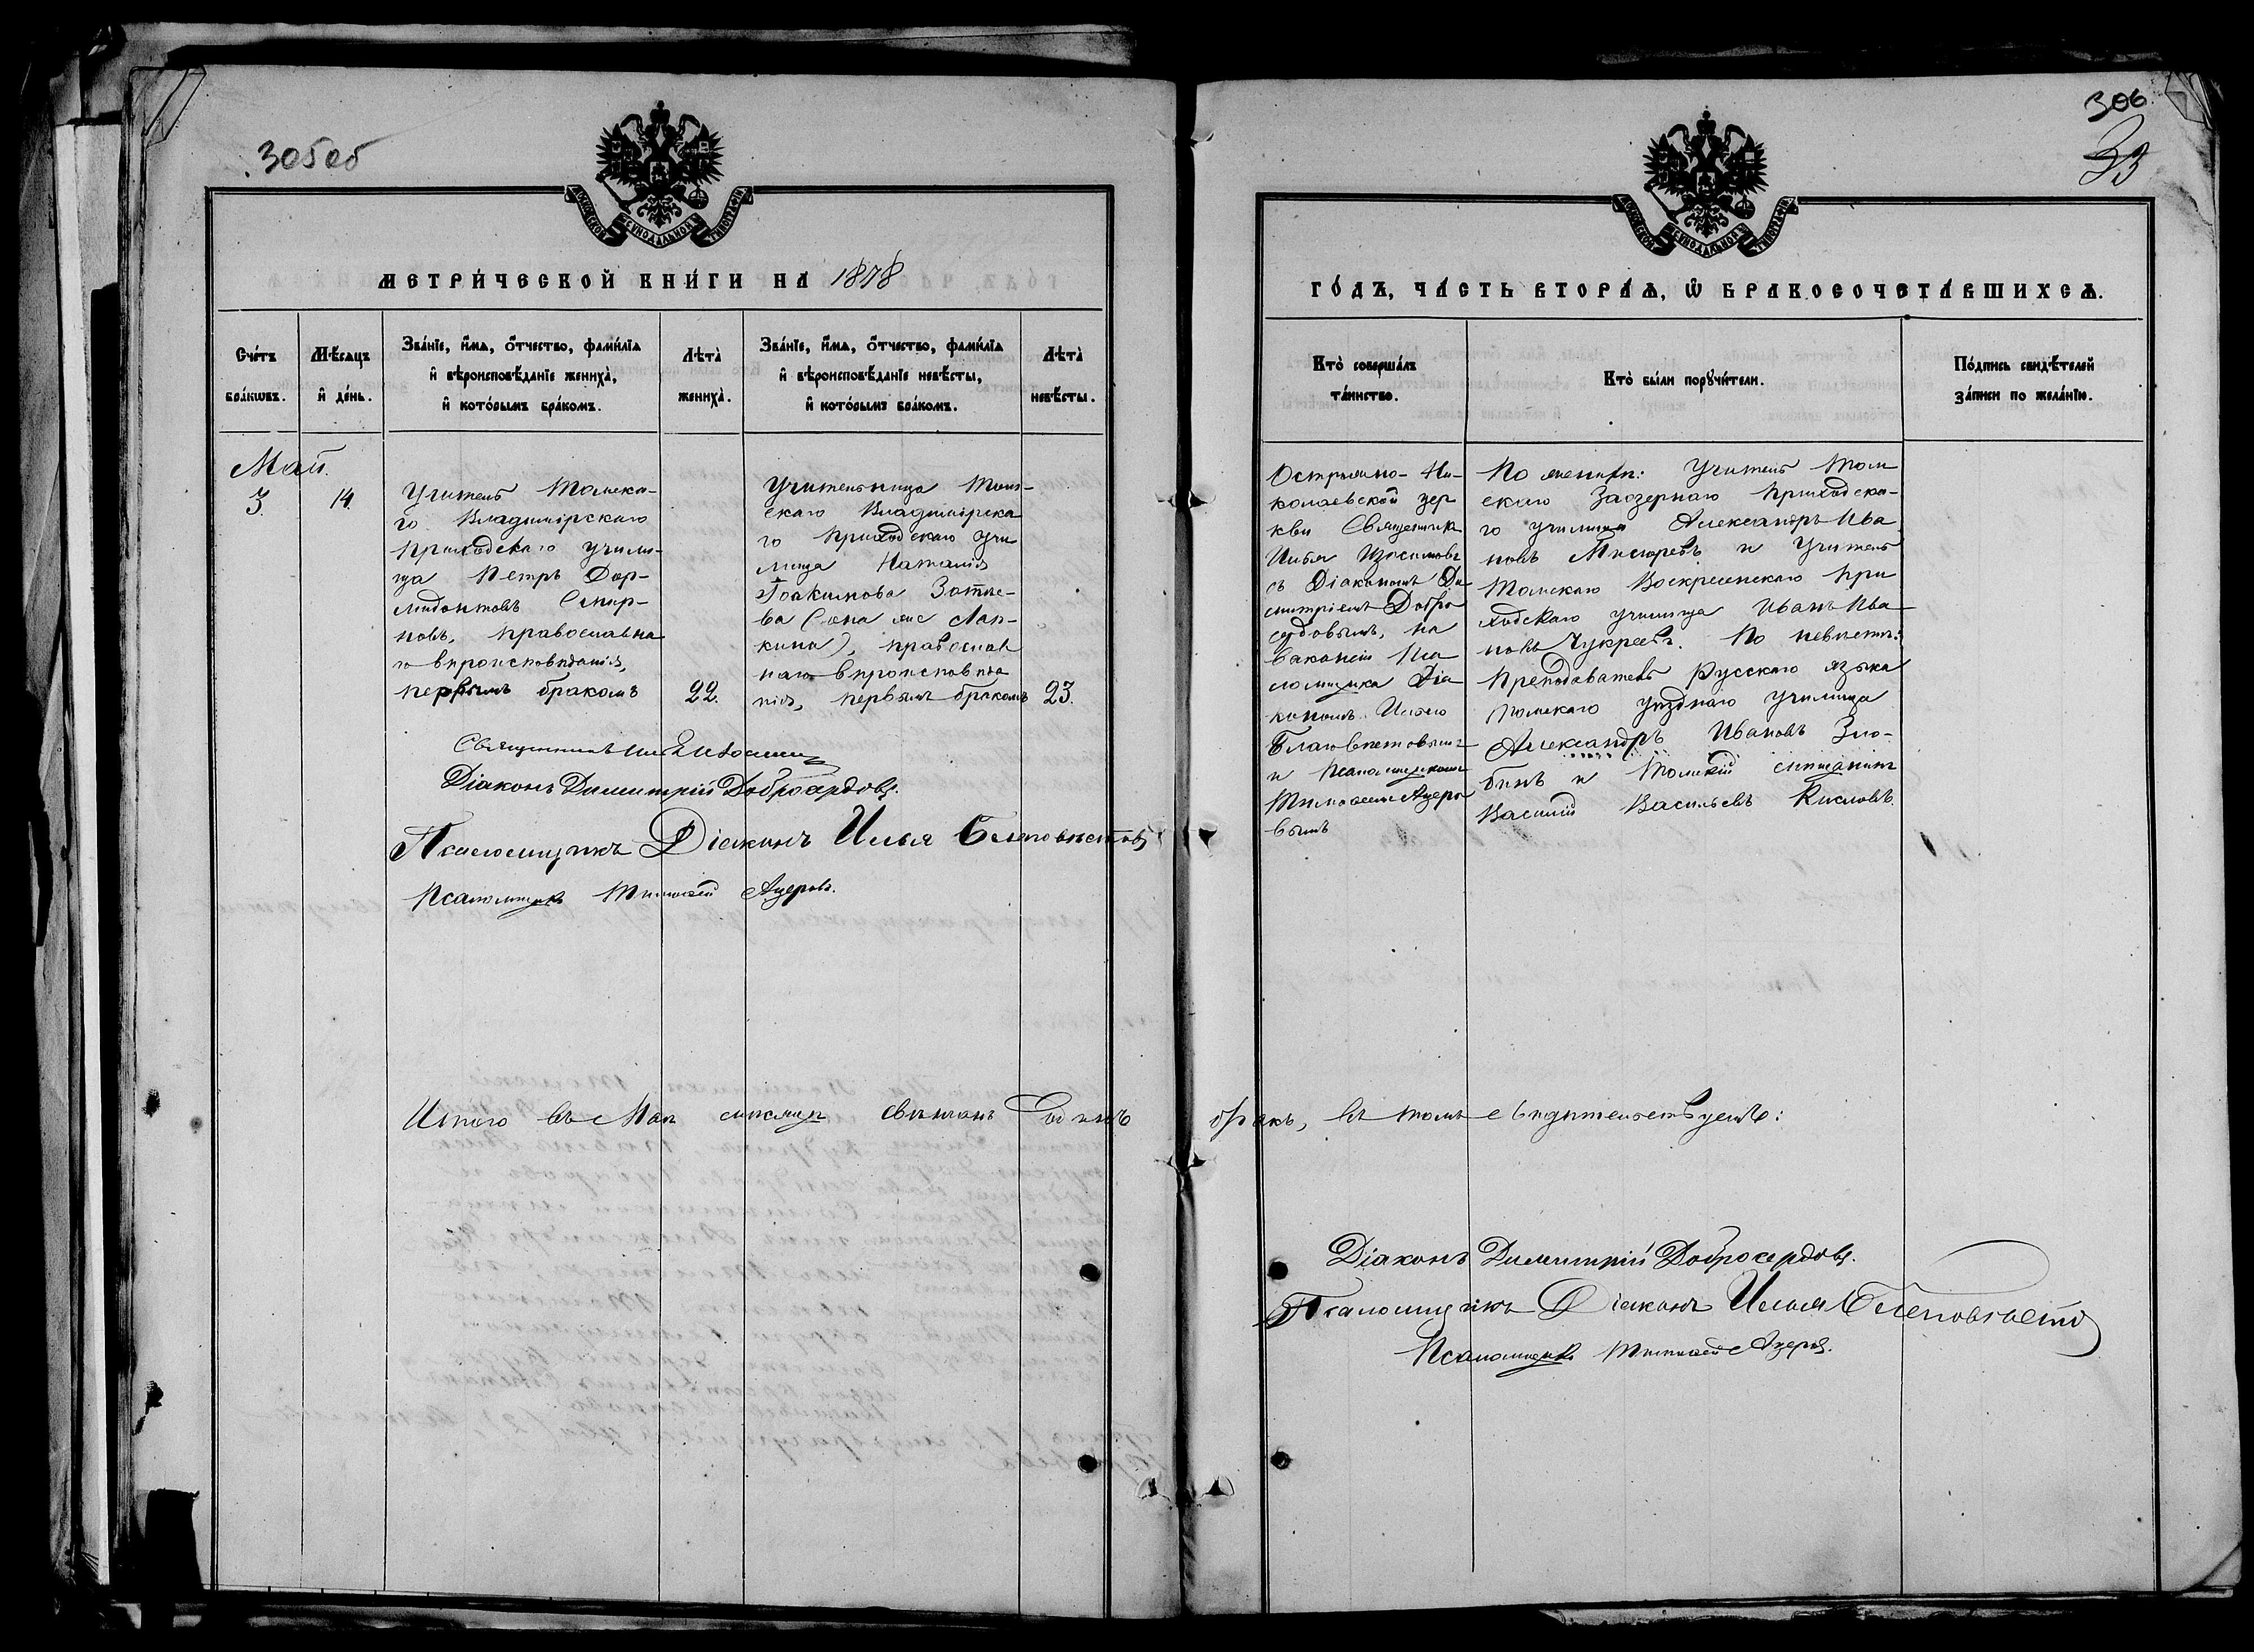 305об
МЕТРИ́ЧЕСКОЙ КНИ́ГИ НА 1878
Сче́тъ бра́кѡвъ.
Мѣ́сѧцъ и҆ де́нь.
Зва́нїе, и҆́мѧ, ѻ҆́тчество, фами́лїа и҆ вѣроисповѣ́данїе жениха̀, и҆ кото́рымъ бра́комъ.
Лѣта̀ жениха̀.
Зва́нїе, и҆́мѧ, ѻ҆́тчество, фами́лїа и҆ вѣроисповѣ́данїе невѣ́сты, и҆ кото́рымъ бра́комъ.
Лѣта̀ невѣ́сты.
Май.
3.
14.
Учитель Томска-
го Владимірскаго
приходскаго учили-
ща Петръ Дор-
мидонтовъ Смир-
новъ, православна
го вѣроисповѣданія,
первымъ бракомъ
22.
Учительница Том-
скаго Владимірска
го приходскаго учи
лища Наталія
Іоакимова Зотѣе-
ва (она же Лап-
кина), православ
наго вѣроисповѣда
нія, первымъ бракомъ
23.
Священникъ
Діаконъ Димитрій Добросердовъ.
Псаломщикъ Діаконъ Илья Благовѣстовъ
Псаломщикъ Тимофей Ацеровъ.
Итого въ Маѣ мѣсяцѣ свѣнчанъ Одинъ
306
33
ГО́ДЪ, ЧА́СТЬ ВТОРА́Ѧ, Ѡ҆ БРАКОСОЧЕТА́ВШИХСѦ.
Кто̀ соверша́лъ та́инство.
Кто̀ бы́ли порꙋчи́тели.
По́дпись свидѣ́телей за́писи по жела́нїю.
Острожно-Ни-
колаевской цер
кви Священник
Илья Изосимовъ
съ Діакономъ Ди
митріемъ Добро
сердовымъ, на
вакансіи Пса
ломщика Діа
кономъ Ильею
Благовѣстовымъ
и Псаломщикомъ
Тимофеемъ Ацеро
вымъ
По женихѣ: Учитель Том
скаго Заозернаго приходска-
го училища Александръ Ива
новъ Мисюревъ и Учитель
Томскаго Воскресенскаго при
ходскаго училища Иванъ Ива
новъ Чукреевъ. По невѣстѣ:
Преподаватель Русскаго языка
Томскаго уѣзднаго училища
Александръ Ивановъ Зло-
бинъ и Томскій мѣщанинъ
Василій Васильевъ Кисловъ.
бракъ, въ томъ свидѣтельствуемъ:
Діаконъ Димитрій Добросердовъ.
Псаломщикъ Діаконъ Илья Благовѣстов
Псаломщикъ Тимофей Ацеровъ.